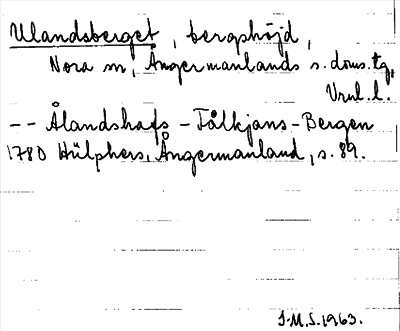 Ulandsberget, bergshöjd,
Nora sn, Ångermanlands s. doms. tg,
Vrnl. l.
-- Ålandshafs - Tålkjans - Bergen
1780 Hülphers, Ångermanland, s. 89.
J.M.S. 1963.